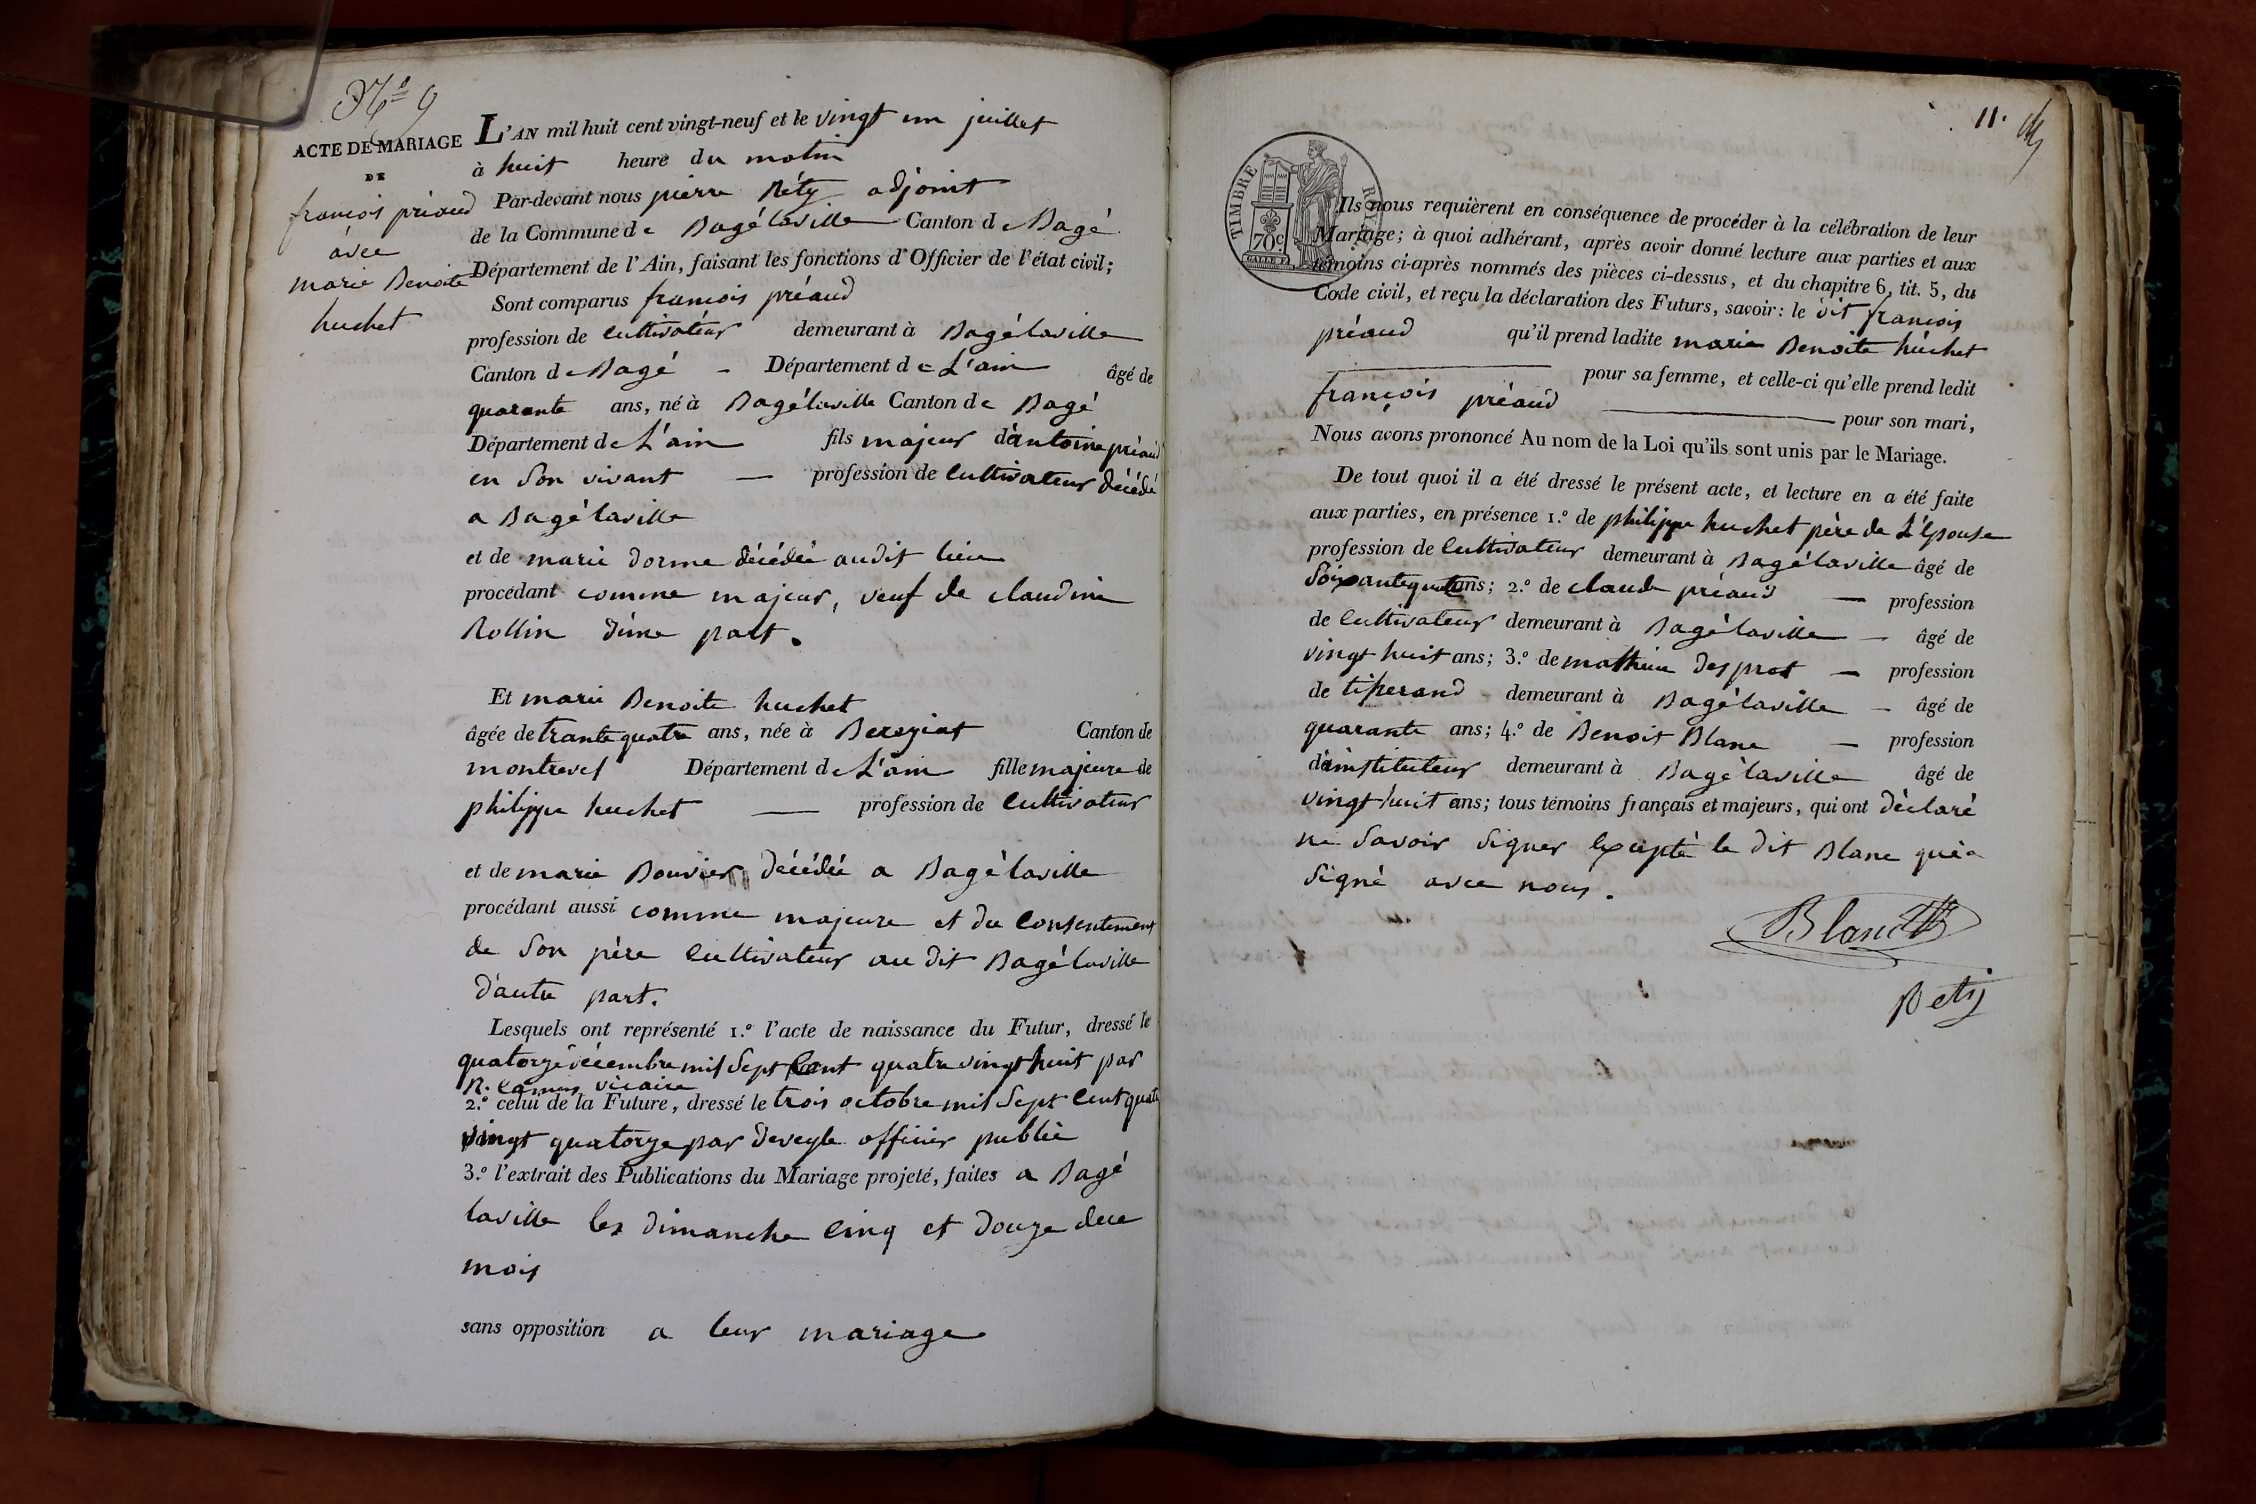 N.o 9
ACTE DE MARIAGE
DE
françois préaud
avec
marie Benoite
huchet
L'AN mil huit cent vingt-neuf et le vingt un juillet
à huit heure du matin
Par-devant nous pierre Réty adjoint
de la Commune de Bagé laville Canton de Bagé
Département de l'Ain, faisant les fonctions d'Officier de l'état civil;
Sont comparus francois préaud
profession de cultivateur demeurant à Bagé laville
Canton de Bagé - Département de L'ain âgé de
quarante ans, né à Bagé laville Canton de Bagé
Département de L'ain fils majeur d'antoine préaud
en son vivant — profession de cultivateur décédé
a Bagé laville
et de marie dorme décédée audit lieu
procédant comme majeur, veuf de claudine
Rollin d'une part.
Et marie Benoite huchet
âgée de trante quatre ans, née à Bereyiat Canton de
montrevel Département de L'ain fille majeure de
philippe huchet — profession de cultivateur
et de marie Bouvier décédée a Bagé laville
procédant aussi comme majeure et du consentement
de son père cultivateur au dit Bagé laville
d'autre part.
Lesquels ont représenté 1.o l'acte de naissance du Futur, dressé le
quatorze décembre mil sept cent quatre vingt huit par
vicaire
2.o celui de la Future, dressé le trois octobre mil sept cent quatre
vingt quatorze par deveyle officier public
3.o l'extrait des Publications du Mariage projeté, faites a Bagé
laville les dimanche cinq et douze du
mois
sans opposition a leur mariage
11.
TIMBRE ROYAL
70c
Ils nous requièrent en conséquence de procéder à la célébration de leur
Mariage; à quoi adhérant, après avoir donné lecture aux parties et aux
témoins ci-après nommés des pièces ci-dessus, et du chapitre 6, tit. 5, du
Code civil, et reçu la déclaration des Futurs, savoir: le dit francois
préaud qu'il prend ladite marie Benoite huchet
— pour sa femme, et celle-ci qu'elle prend ledit
françois préaud — pour son mari,
Nous avons prononcé Au nom de la Loi qu'ils sont unis par le Mariage.
De tout quoi il a été dressé le présent acte, et lecture en a été faite
aux parties, en présence 1.o de philippe huchet père de L'épouse
profession de cultivateur demeurant à Bagé laville âgé de
soixante quatre ans; 2.o de claude préaud — profession
de cultivateur demeurant à Bagé laville — âgé de
vingt huit ans; 3.o de mathieu desprat — profession
de tisserand demeurant à Bagé laville — âgé de
quarante ans; 4.o de Benoit Blanc — profession
d'instituteur demeurant à Bagé laville âgé de
vingt huit ans; tous témoins français et majeurs, qui ont déclaré
ne savoir signer excepté le dit Blanc qui a
signé avec nous.
Blanc
Rety